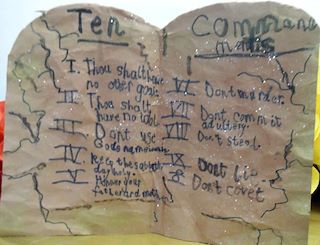 Ten
I. Thou shalt have
no other gods
II. Thou shalt
have no idol
III. Dont use
Gods name in vain
IV. Keep the sabbath
day holy.
V. Honour your
father and mother
Command
ments
VI Dont murder.
VII Dont commit
adultery.
VIII Don't steal.
IX Dont lie
X Don't covet